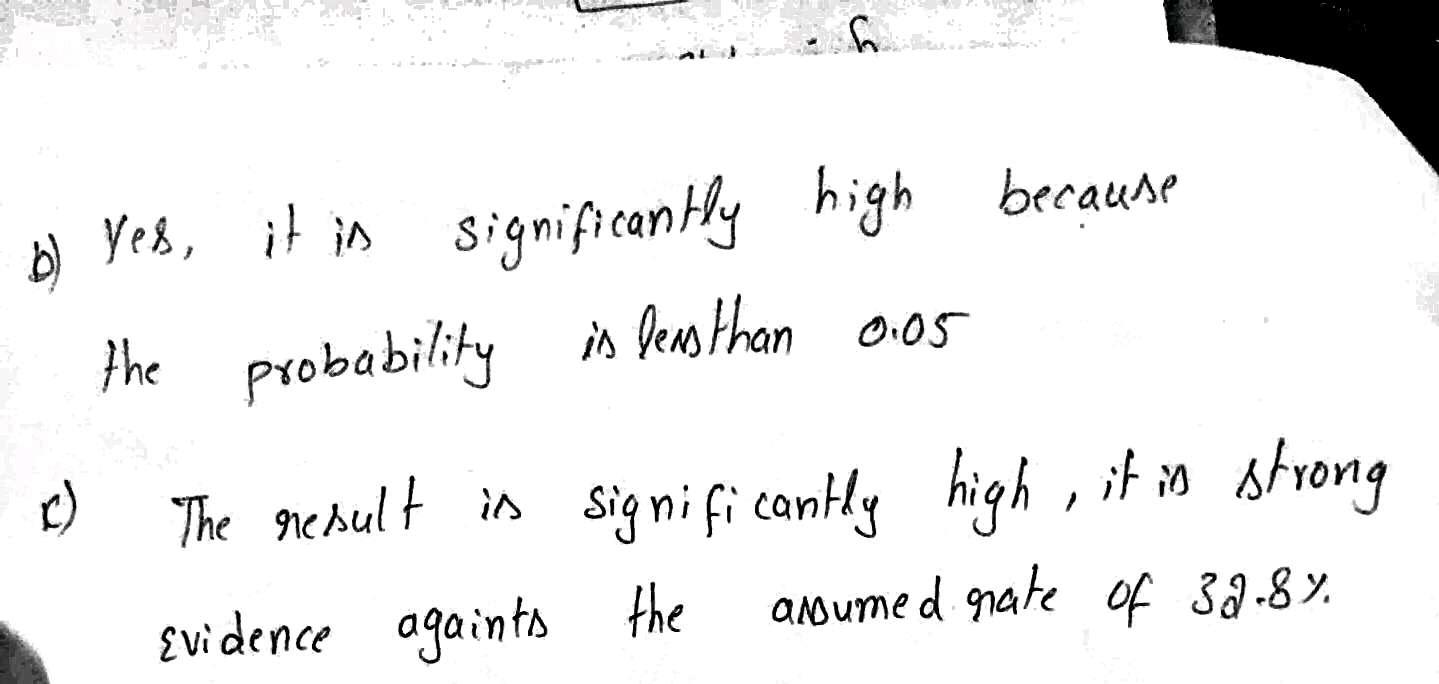 b) Yes, it is significantly high because
the probability is less than 0.05
c) The result is significantly high, it is strong
evidence againts the assumed rate of 32.8%.